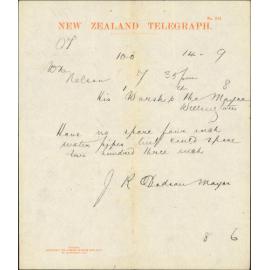 No.
NEW ZEALAND TELEGRAPH.
OT
100 14-9
Nelson 7 35 pm
8
His Worship the Mayor
Wellington
Have no spare four inch
water pipes but could spare
two hundred three inch
J R Dodson Mayor
8 6